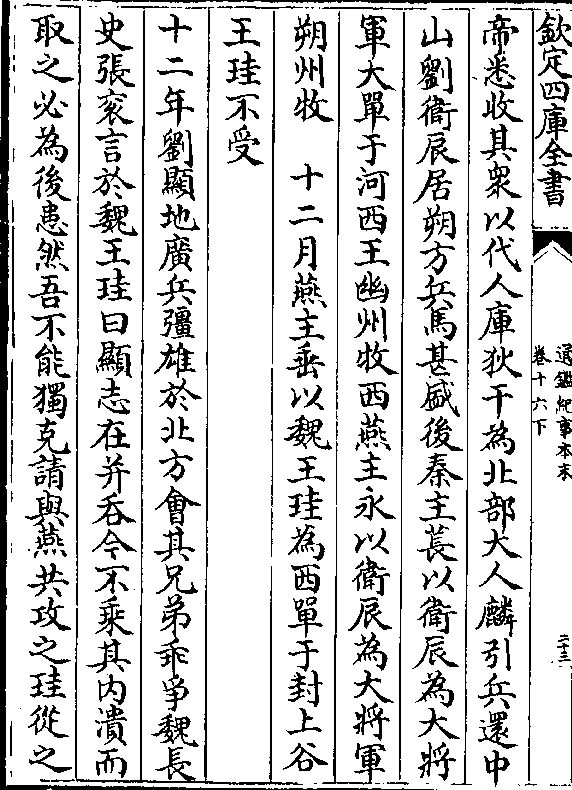 欽定四庫全書
通鑑紀事本末
卷十六下
二十三
帝悉收其衆以代人庫狄干為北部大人麟引兵還中
山劉衛辰居朔方兵馬甚盛後秦主萇以衛辰為大將
軍大單于河西王幽州牧西燕主永以衛辰為大將軍
朔州牧　十二月燕主垂以魏王珪為西單于封上谷
王珪不受
十二年劉顯地廣兵彊雄於北方會其兄弟乖爭魏長
史張衮言於魏王珪曰顯志在并吞今不乘其内潰而
取之必為後患然吾不能獨克請與燕共攻之珪從之